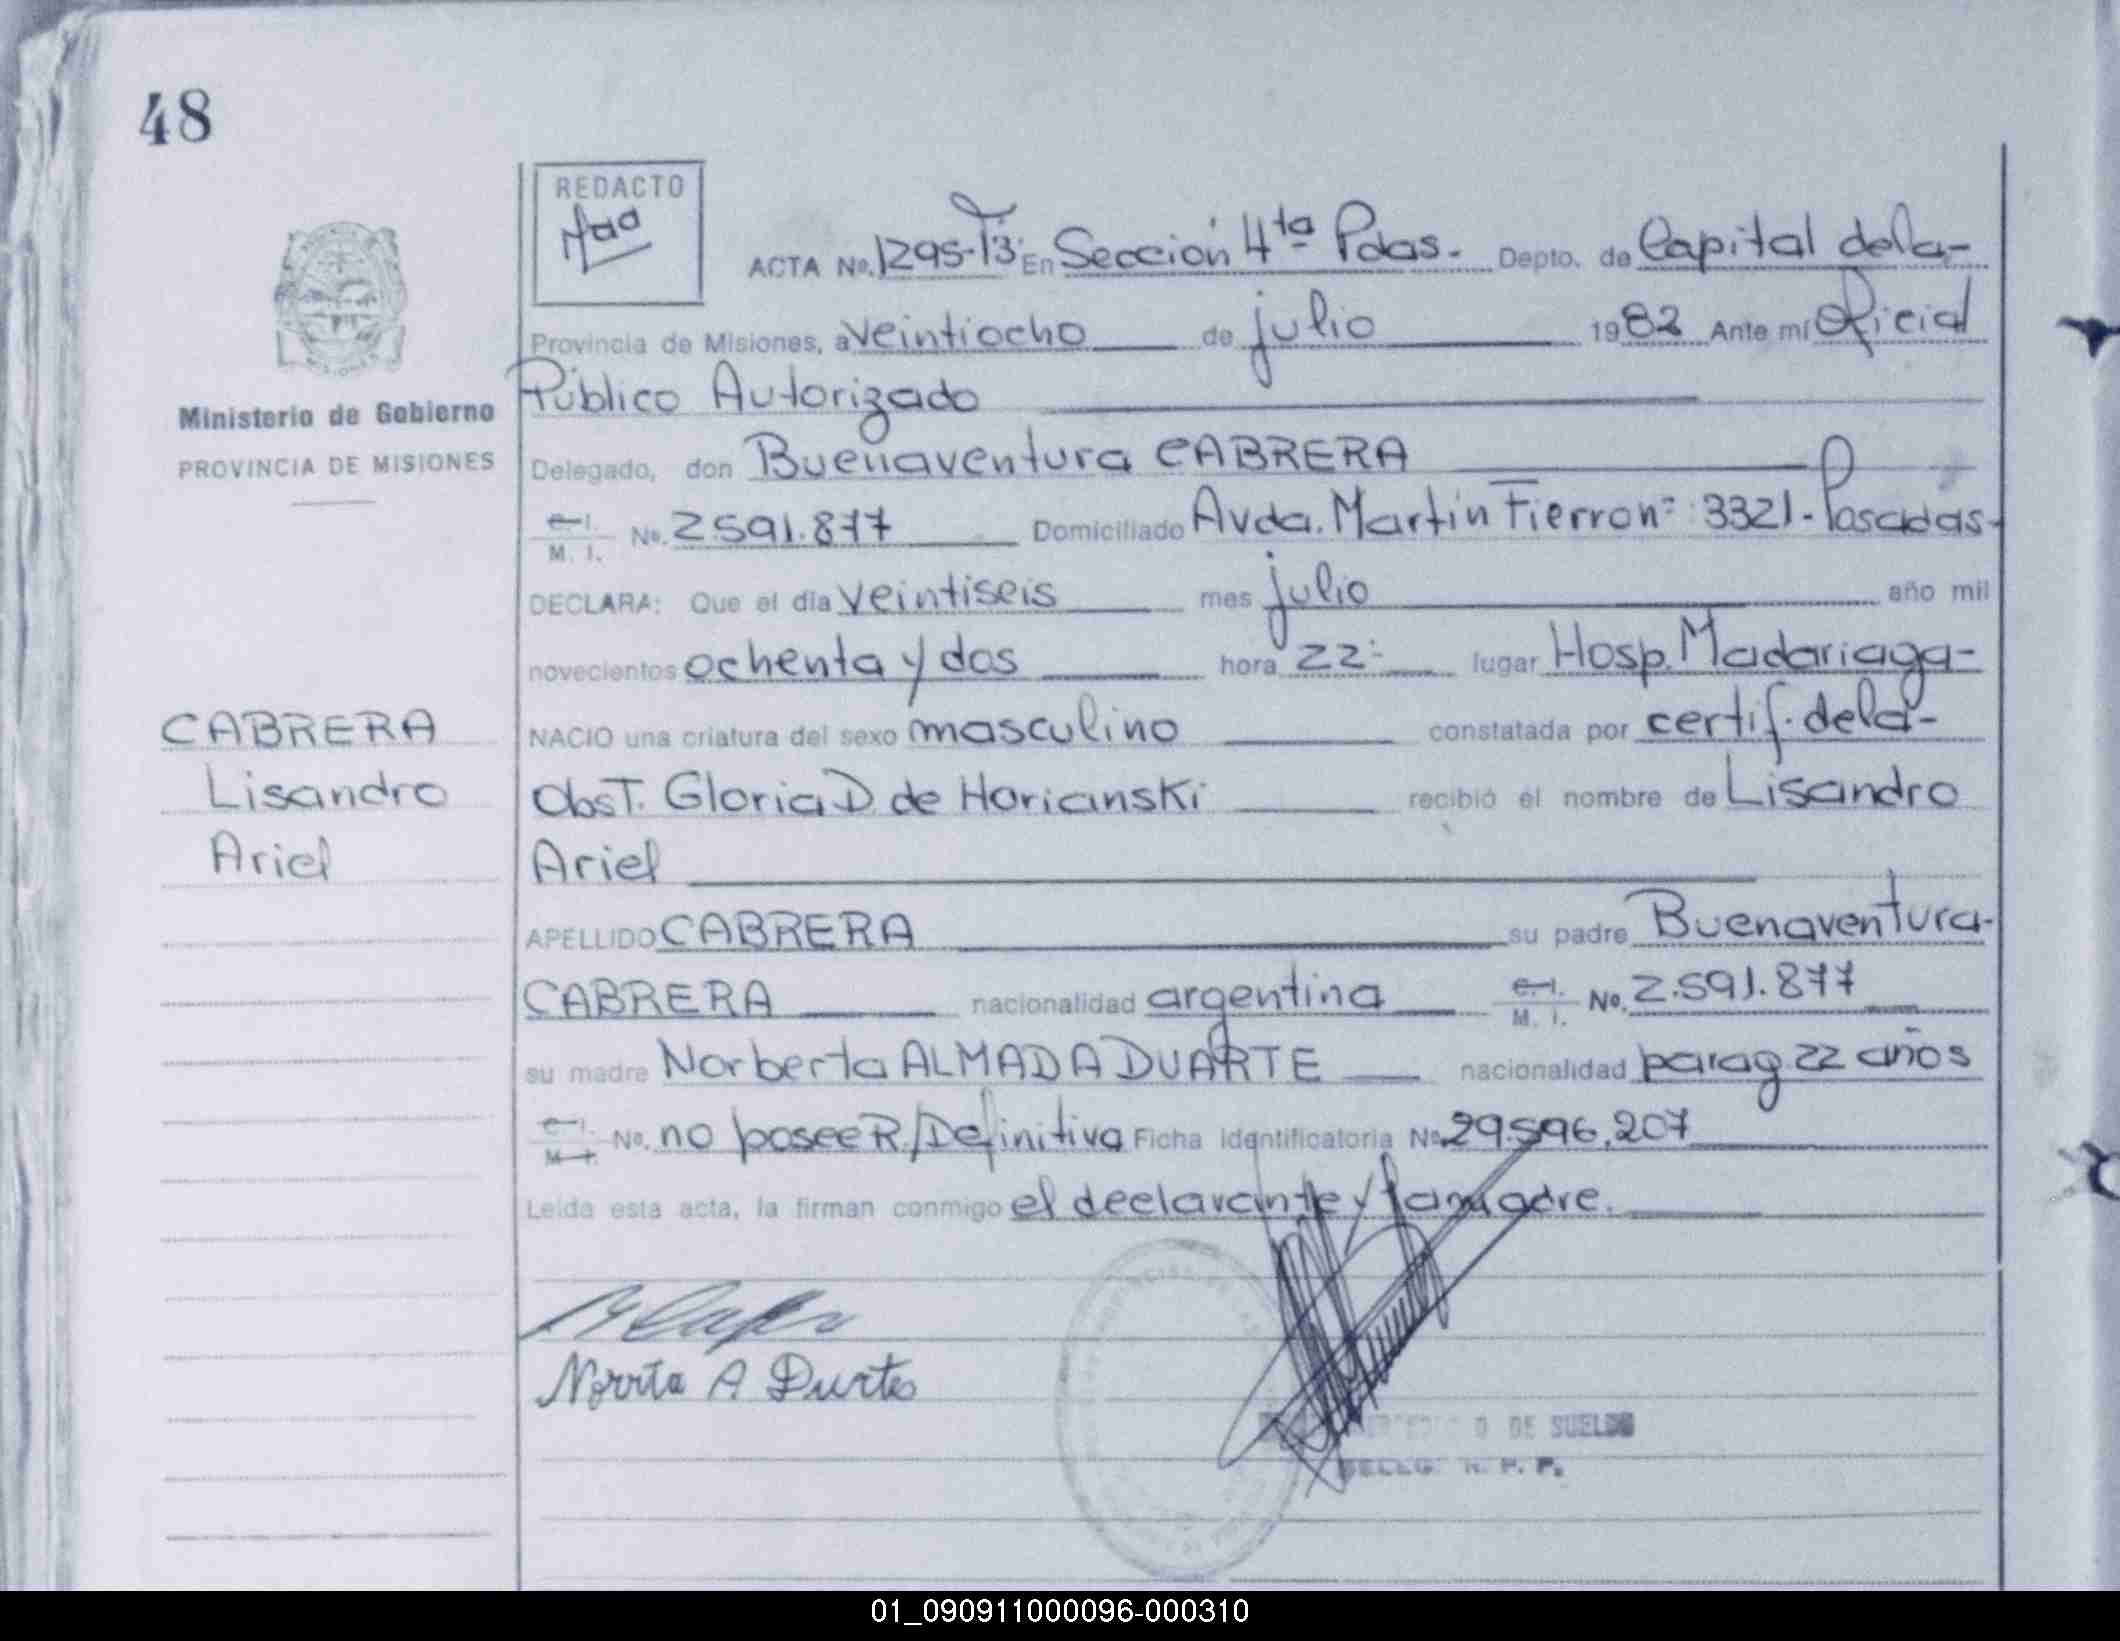 48
REDACTO
ACTA No. 1295-T3 En Sección 4ta Pdas. Depto. de Capital dela-
Provincia de Misiones, a veintiocho de julio 1982 Ante mí Oficial
Público Autorizado
Ministerio de Gobierno
PROVINCIA DE MISIONES
Delegado, don Buenaventura CABRERA
C. I. M. I. No. 2.591.877 Domiciliado Avda. Martín Fierro nº 3321-Posadas-
DECLARA: Que el día veintiseis mes julio año mil
novecientos ochenta y dos hora 22: lugar Hosp. Madariaga-
CABRERA
Lisandro
Ariel
NACIO una criatura del sexo masculino constatada por certif. dela-
Obst. Gloria D. de Horianski recibió el nombre de Lisandro
Ariel
APELLIDO CABRERA su padre Buenaventura-
CABRERA nacionalidad argentina C. I. M. I. No. 2.591.877
su madre Norberta ALMADA DUARTE nacionalidad parag 22 años
C. I. M. I. No. no posee R./Definitiva Ficha Identificatoria No 29.596.207
Leída esta acta, la firman conmigo el declarante y la madre.
A Durte
DE SUELDO
DELEG. R. P. P.
01_090911000096-000310